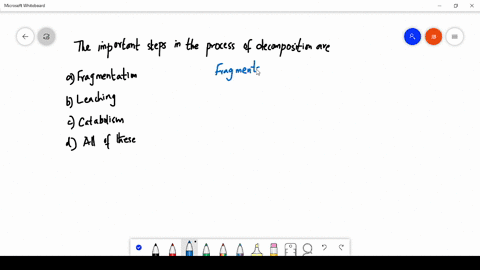 Microsoft Whiteboard
The important steps in the process of decomposition are
a) Fragmentation
Fragmenta
b) Leaching
c) Catabolism
d) All of these